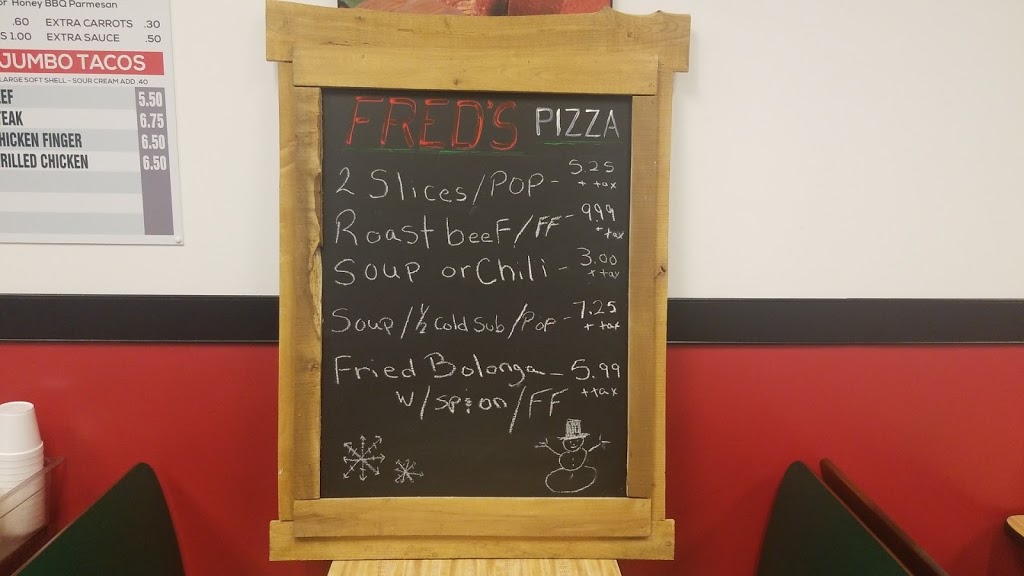 or Honey BBQ Parmesan
.60 EXTRA CARROTS .30
S 1.00 EXTRA SAUCE .50
JUMBO TACOS
LARGE SOFT SHELL - SOUR CREAM ADD .40
EF 5.50
TEAK 6.75
HICKEN FINGER 6.50
RILLED CHICKEN 6.50
FRED'S PIZZA
2 Slices/POP - 5.25 + tax
Roast beef/FF - 999 + tax
Soup or Chili - 3.00 + tax
Soup/½ Cold Sub/Pop - 7.25 + tax
Fried Bolonga - 5.99 + tax
w/sp:on/FF